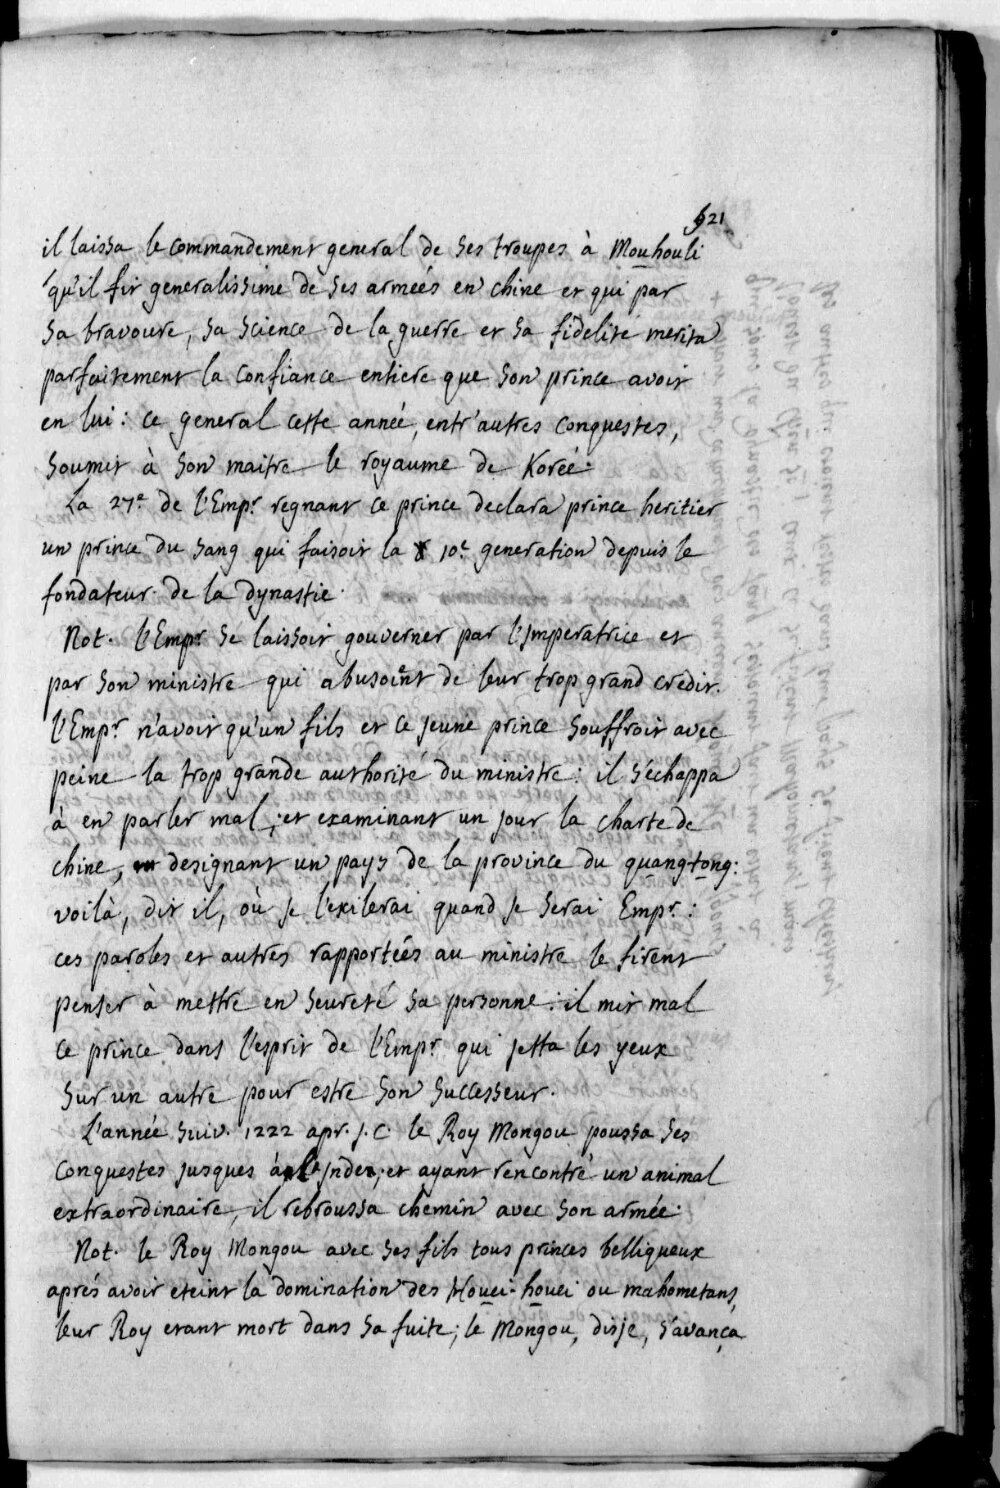 521
il laissa le commandement general de ses troupes à Mouhouli
qu'il fit generalissime de ses armées en chine et qui par
sa bravoure, sa science de la guerre et sa fidelité merita
parfaitement la confiance entiere que son prince avoit
en lui: ce general cette année, entr'autres conquestes,
soumit à son maitre le royaume de Korée.
La 27.e de l'Emp.r regnant ce prince declara prince heritier
un prince du sang qui faisoit la 10.e generation depuis le
fondateur de la dynastie.
Not. l'Emp.r se laissoit gouverner par l'Imperatrice et
par son ministre qui abusoint de leur trop grand credit.
l'Emp.r n'avoit qu'un fils et ce jeune prince souffroit avec
peine la trop grande authorité du ministre: il s'echappa
à en parler mal, et examinant un jour la charte de
chine, designant un pays de la province du quang-tong:
voilà, dit il, où je l'exilerai quand je serai Emp.r:
ces paroles et autres rapportées au ministre le firent
penser à mettre en seureté sa personne: il mit mal
ce prince dans l'esprit de l'Emp.r qui jetta les yeux
sur un autre pour estre son successeur.
L'année suiv. 1222 apr. J.C le Roy Mongou poussa ses
conquestes jusques à l'Inde, et ayant rencontré un animal
extraordinaire, il rebroussa chemin avec son armée.
Not. le Roy Mongou avec ses fils tous princes belliqueux
aprés avoir eteint la domination des Houei-houei ou mahometans,
leur Roy etant mort dans sa fuite; le Mongou, disje, s'avança